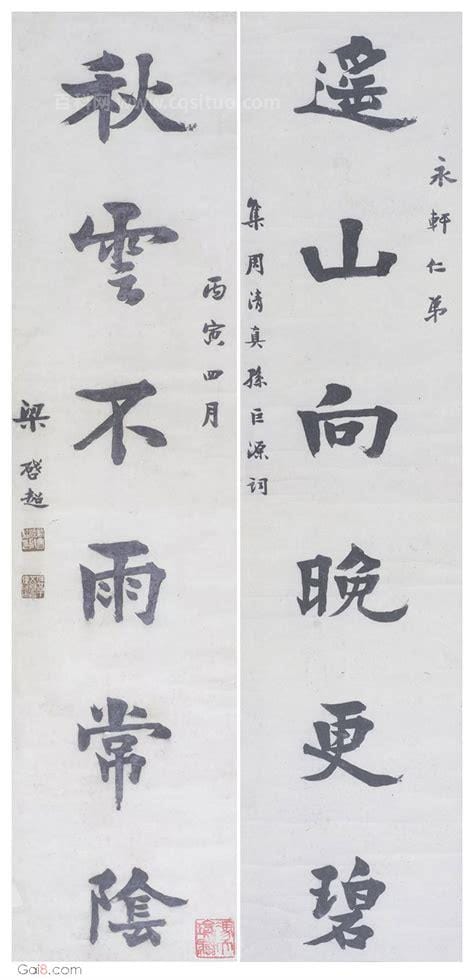 遙山向晚更碧
永軒仁弟
集周清真孫巨源詞
秋雲不雨常陰
丙寅四月
梁啓超
Gai8.com